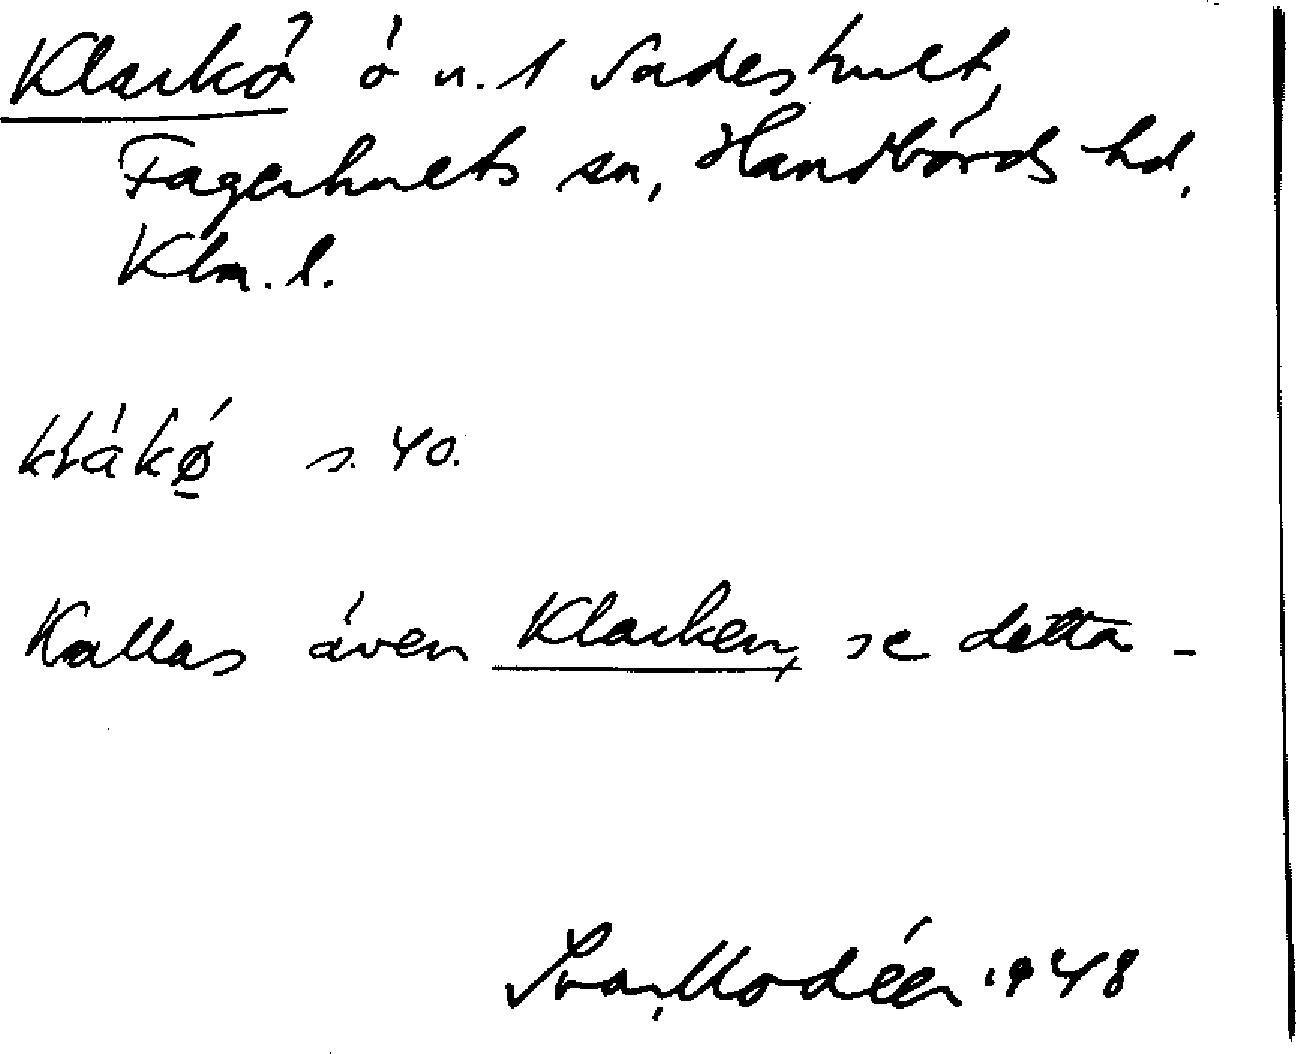 Klarkö ö n. 1 Sadeshult,
Fagerhults sn, Handbörds hd,
Klm. l.
klákǿ̱ s. 40.
Kallas även Klarken, se detta -
Ivar Modéer 1948